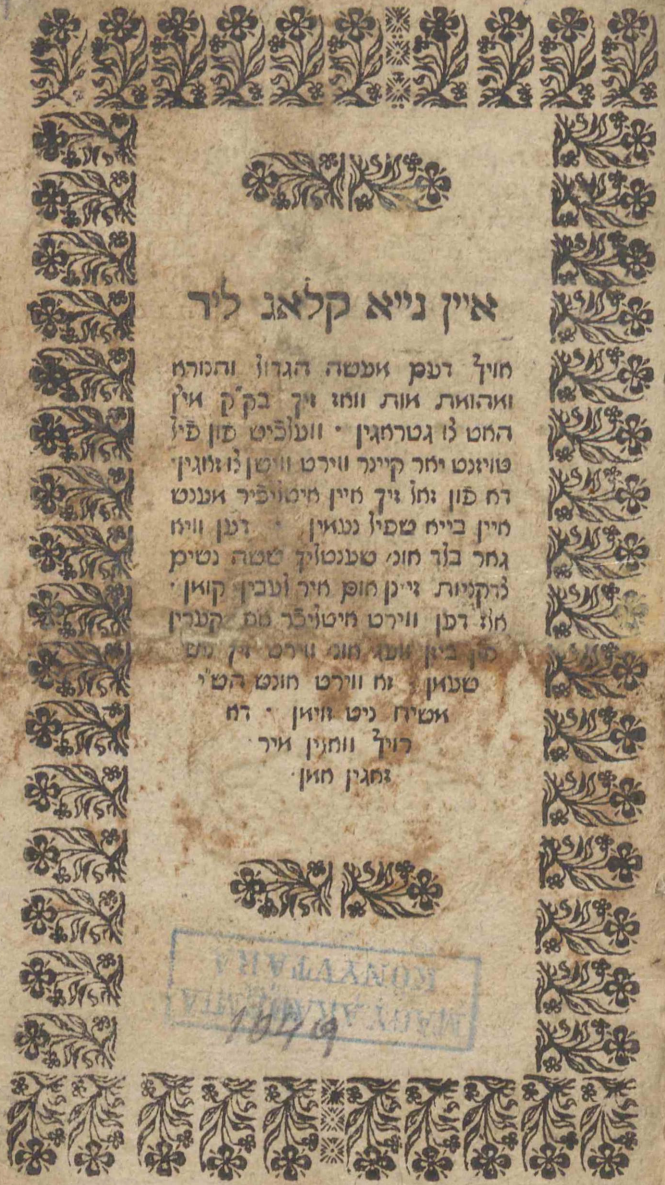 איין נייא קלאג ליר
אויף דעם מעשה הגדול והנורא
ואהואת אות וואז זיך בק״ק מיץ
האט צו גטראגין · וועלכיש פון פיל
טויזנט יאר קיינר ווירט וויסן צו זאגין·
דא פון זאל זיך איין איטליכיר מענש
איין בייא שפיל נעמין · דען וויא
גאר בלד אונ׳ שענטליך ששה נשים
צדקניות זיינן אום איר לעבין קומן ·
אז דען ווירט איטליכר קערין
פון ביזן וועג אונ׳ ווירט זיך
טעאן · זא ווירט אונט הש״י
משיח ניט זוימן · דא
רויף וואלין מיר
זאגין אמן·
MAGY. AKADEMIA
KÖNYVTARA
1049